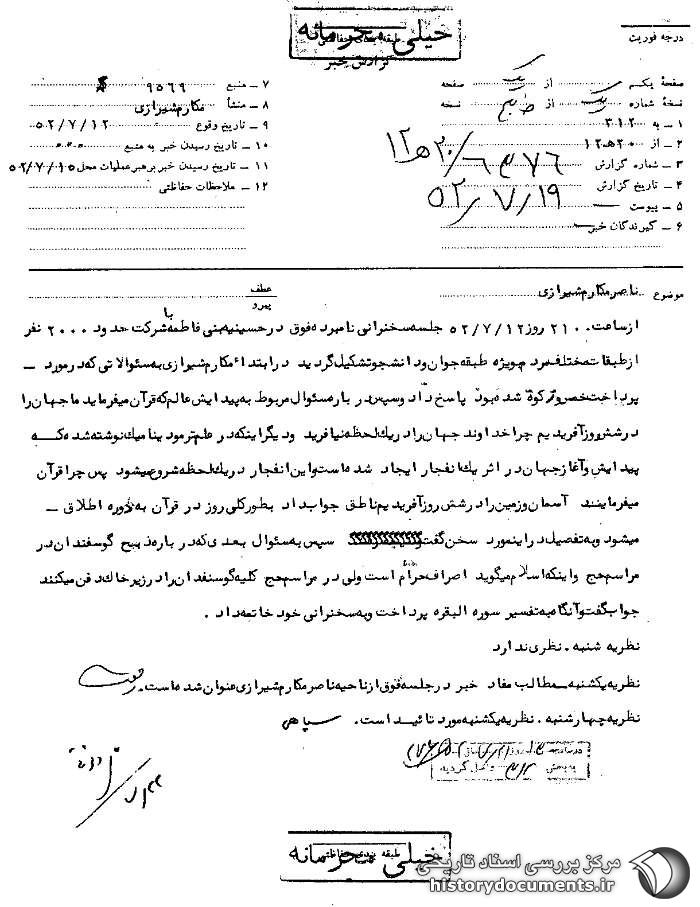 خیلی محرمانه
طبقه بندی حفاظتی
گزارش خبر
درجه فوریت
صفحهٔ یکم از یک صفحه
نسخهٔ شماره یک از نسخه
۱ ـ به ۳۱۲
۲ ـ از ۲۰ ه‍ ۱۲
۳ ـ شماره گزارش
۴ ـ تاریخ گزارش ۵۲/۷/۱۹
۵ ـ پیوست
۶ ـ گیرندگان خبر
۷ ـ منبع ۹۵۶۹
۸ ـ منشأ مکارم شیرازی
۹ ـ تاریخ وقوع ۵۲/۷/۱۲
۱۰ ـ تاریخ رسیدن خبر به منبع
۱۱ ـ تاریخ رسیدن خبر برهبر عملیات محل ۵۲/۷/۱۵
۱۲ ـ ملاحظات حفاظتی
موضوع ناصر مکارم شیرازی
عطف
پیرو
از ساعت ۲۱۰۰ روز ۵۲/۷/۱۲ جلسه سخنرانی نامبرده فوق در حسینیه بنی فاطمه با شرکت حدود ۲۰۰۰ نفر
از طبقات مختلف مردم بویژه طبقه جوان و دانشجو تشکیل گردید در ابتداء مکارم شیرازی به سئوالاتی که در مورد ـ
پرداخت خمس و زکوة شده بود پاسخ داد و سپس درباره سئوال مربوط به پیدایش عالم که قرآن میفرماید ما جهان را
در شش روز آفریدیم چرا خداوند جهان را در یک لحظه نیافرید و دیگر اینکه در علم ترمودینامیک نوشته شده که
پیدایش و آغاز جهان در اثر یک انفجار ایجاد شده است و این انفجار در یک لحظه شروع میشود پس چرا قرآن
میفرمایند آسمان و زمین را در شش روز آفریدیم ناطق جواب داد بطور کلی روز در قرآن به دوره اطلاق ـ
میشود و به تفصیل در اینمورد سخن گفت سپس به سئوال بعدی که درباره ذبیح گوسفندان در
مراسم حج و اینکه اسلام میگوید اصراف حرام است ولی در مراسم حج کلیه گوسفندان را در زیر خاک دفن میکنند
جواب گفت و آنگاه به تفسیر سوره البقره پرداخت و به سخنرانی خود خاتمه داد .
نظریه شنبه . نظری ندارد
نظریه یکشنبه ـ مطالب مفاد خبر در جلسه فوق از ناحیه ناصر مکارم شیرازی عنوان شده است .
نظریه چهارشنبه . نظریه یکشنبه مورد تائید است . سپاهی
به بخش ۳۱۲ واصل گردید
خیلی محرمانه
طبقه بندی حفاظتی
مرکز بررسی اسناد تاریخی
historydocuments.ir